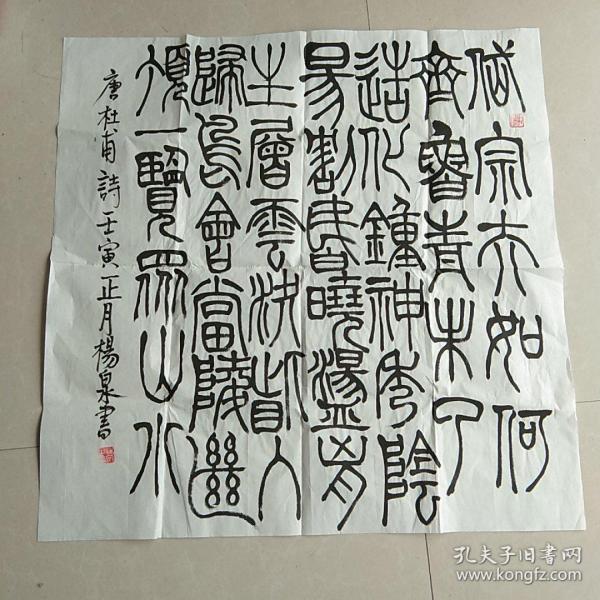 岱宗夫如何
齊魯青未了
造化鐘神秀陰
昜割昏曉盪胷
生層雲決眥入
歸鳥會當陵絕
頂一覽眾山小
唐杜甫詩壬寅正月楊泉書
孔夫子旧书网
www.kongfz.com